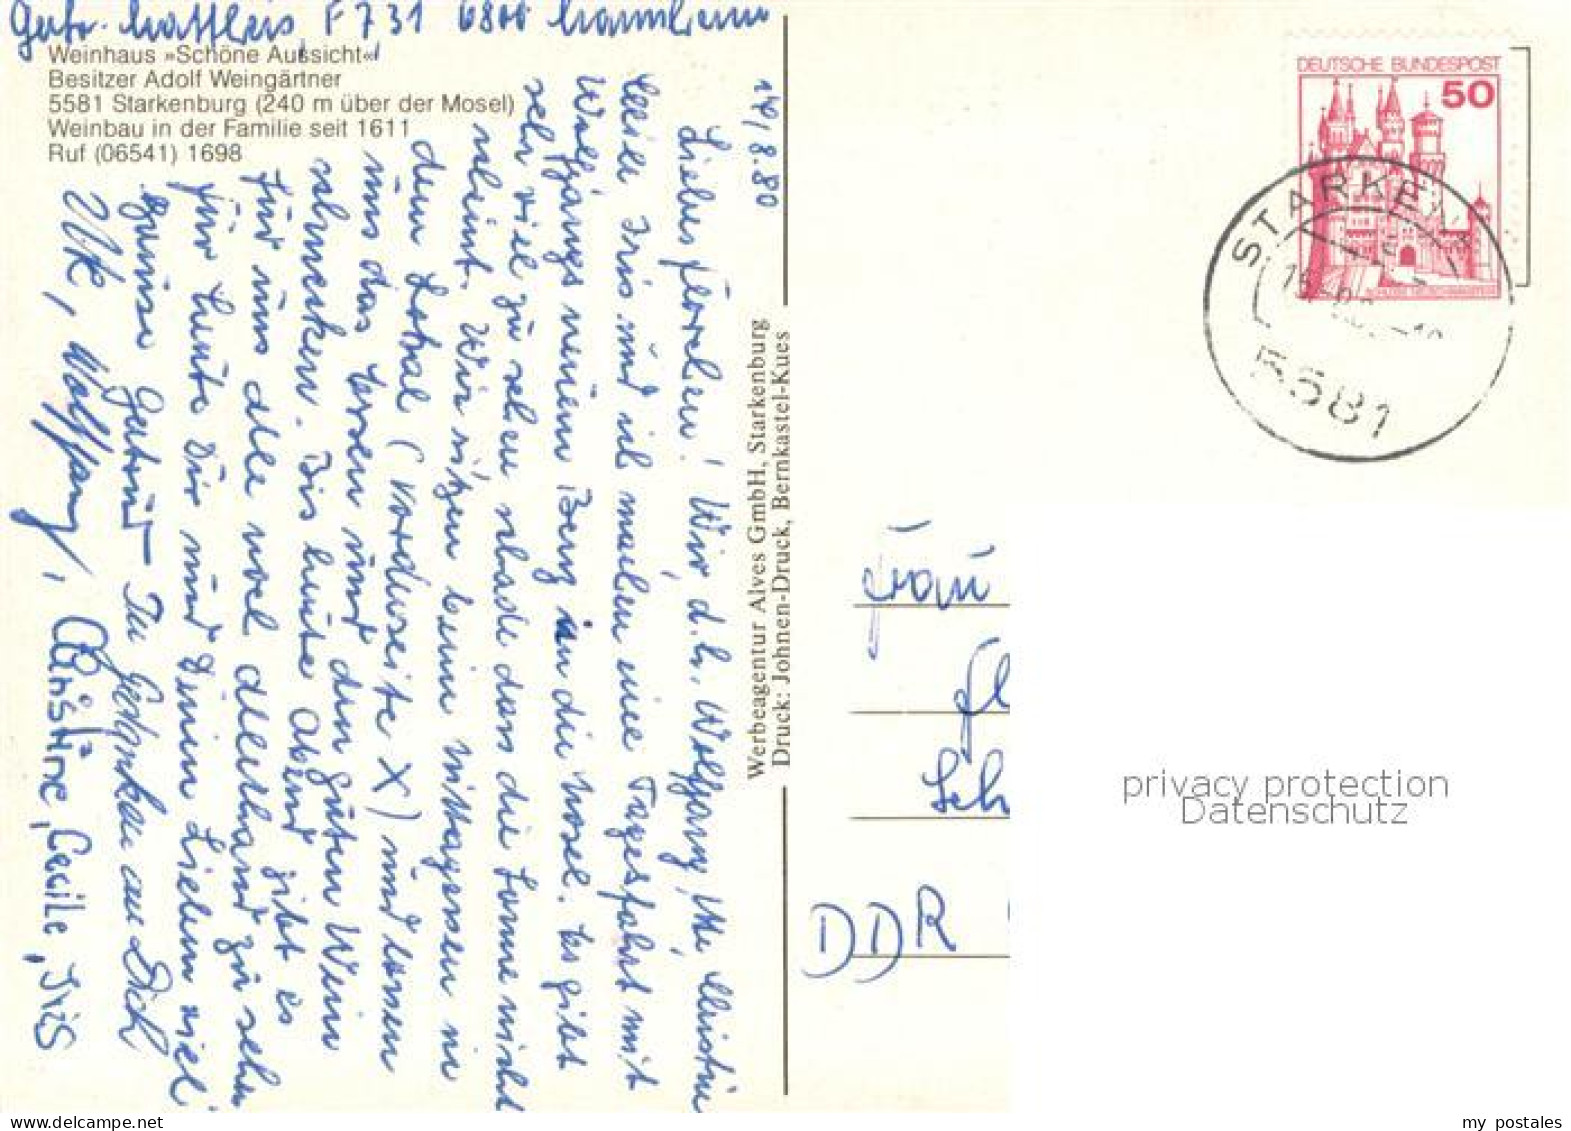 F 7 31 6800 Mannheim
Weinhaus »Schöne Aussicht«
Besitzer Adolf Weingärtner
5581 Starkenburg (240 m über der Mosel)
Weinbau in der Familie seit 1611
Ruf (06541) 1698
14.8.80
Liebes Florchen! Wir d.h. Wolfgang, Ute, Christine
Cecilie Iris und ich machen eine Tagesfahrt mit
Wolfgangs neuem Benz an die Mosel. Es gibt
sehr viel zu sehen schade dass die Sonne nicht
scheint. Wir sitzen beim Mittagessen in
dem Lokal (Vorderseite X) und lassen
uns das Essen und den guten Wein
schmecken. Bis heute Abend gibt es
für uns alle noch allerhand zu sehen
für heute Dir und Deinen Lieben viel
Grüsse Gertrud In Gedanken an Dich
Ute, Wolfgang, Christine, Cecile, Iris
Werbeagentur Alves GmbH, Starkenburg
Druck: Johnen-Druck, Bernkastel-Kues
DEUTSCHE BUNDESPOST
50
STARKEN
5581
Frau
Fl
Sch
DDR
privacy protection
Datenschutz
my postales